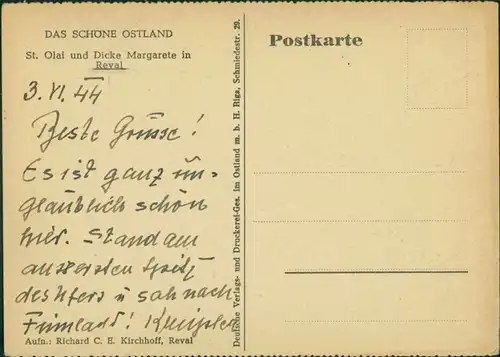 DAS SCHÖNE OSTLAND
St. Olai und Dicke Margarete in
Reval
3. VI. 44
Beste Grüsse!
Es ist ganz un=
glaublich schön
hier. Stand am
äussersten Spitz
des Ufers u sah nach
Finnland!
Aufn.: Richard C. E. Kirchhoff, Reval
Deutsche Verlags- und Druckerei-Ges. im Ostland m. b. H. Riga, Schmiedestr. 29.
Postkarte